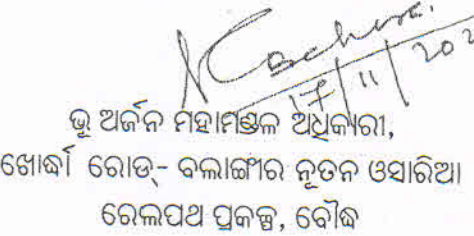 17/11/202
ଭୂ ଅର୍ଜନ ମହାମଣ୍ଡଳ ଅଧିକାରୀ,
ଖୋର୍ଦ୍ଧା ରୋଡ୍- ବଲାଙ୍ଗୀର ନୂତନ ଓସାରିଆ
ରେଲପଥ ପ୍ରକଳ୍ପ, ବୌଦ୍ଧ